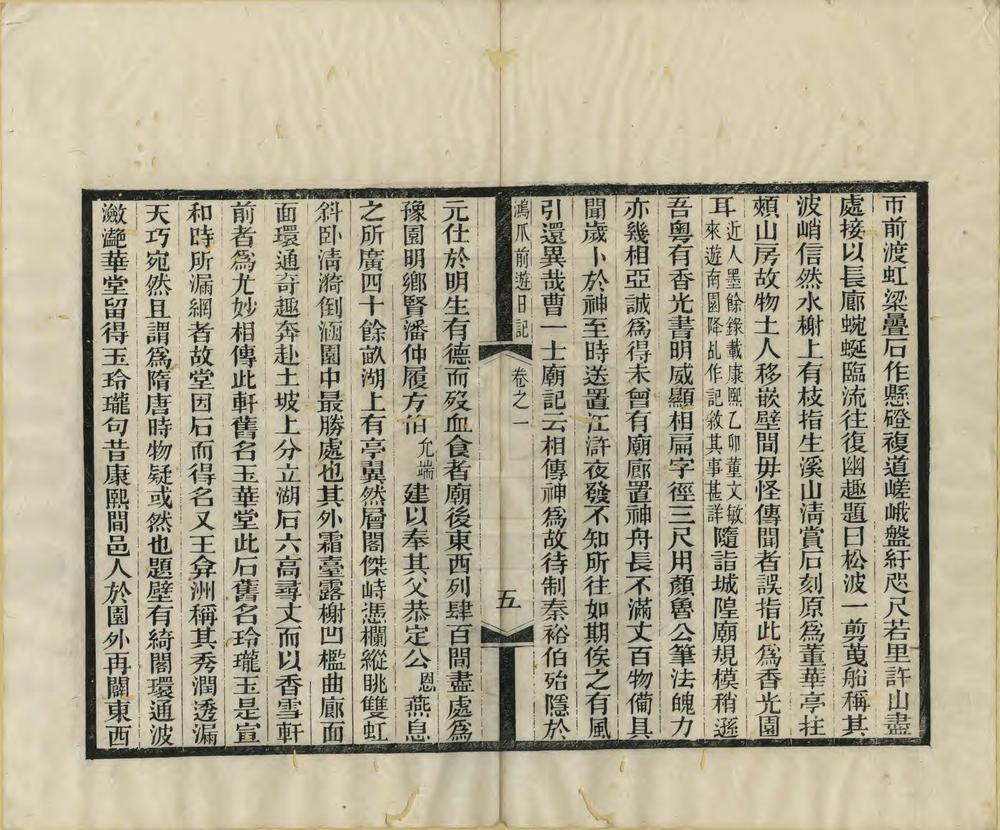 市前渡虹梁疊石作懸磴複道嵯峨盤紆咫尺若里許山盡
處接以長廊蜿蜒臨流往復幽趣題曰松波一剪蒐船稱其
波峭信然水榭上有枝指生溪山淸賞石刻原爲董華亭拄
頰山房故物土人移嵌壁間毋怪傳聞者誤指此爲香光園
耳近人墨餘錄載康熙乙卯董文敏來遊南園降乩作記敘其事甚詳隨詣城隍廟規模稍遜
吾粵有香光書明威顯相扁字徑三尺用顏魯公筆法魄力
亦幾相亞誠爲得未曾有廟廊置神舟長不滿丈百物備具
聞歲卜於神至時送置江滸夜發不知所往如期俟之有風
引還異哉曹一士廟記云相傳神爲故待制秦裕伯殆隱於
鴻爪前遊日記 卷之一 五
元仕於明生有德而歿血食者廟後東西列肆百間盡處爲
豫園明鄉賢潘仲履方伯允端建以奉其父恭定公恩燕息
之所廣四十餘畝湖上有亭翼然層閣傑峙憑欄縱眺雙虹
斜臥淸漪倒涵園中最勝處也其外霜臺露榭凹檻曲廊面
面環通奇趣奔赴土坡上分立湖石六高尋丈而以香雪軒
前者爲尤妙相傳此軒舊名玉華堂此石舊名玲瓏玉是宣
和時所漏網者故堂因石而得名又王弇洲稱其秀潤透漏
天巧宛然且謂爲隋唐時物疑或然也題壁有綺閣環通波
瀲灩華堂留得玉玲瓏句昔康熙間邑人於園外再闢東西